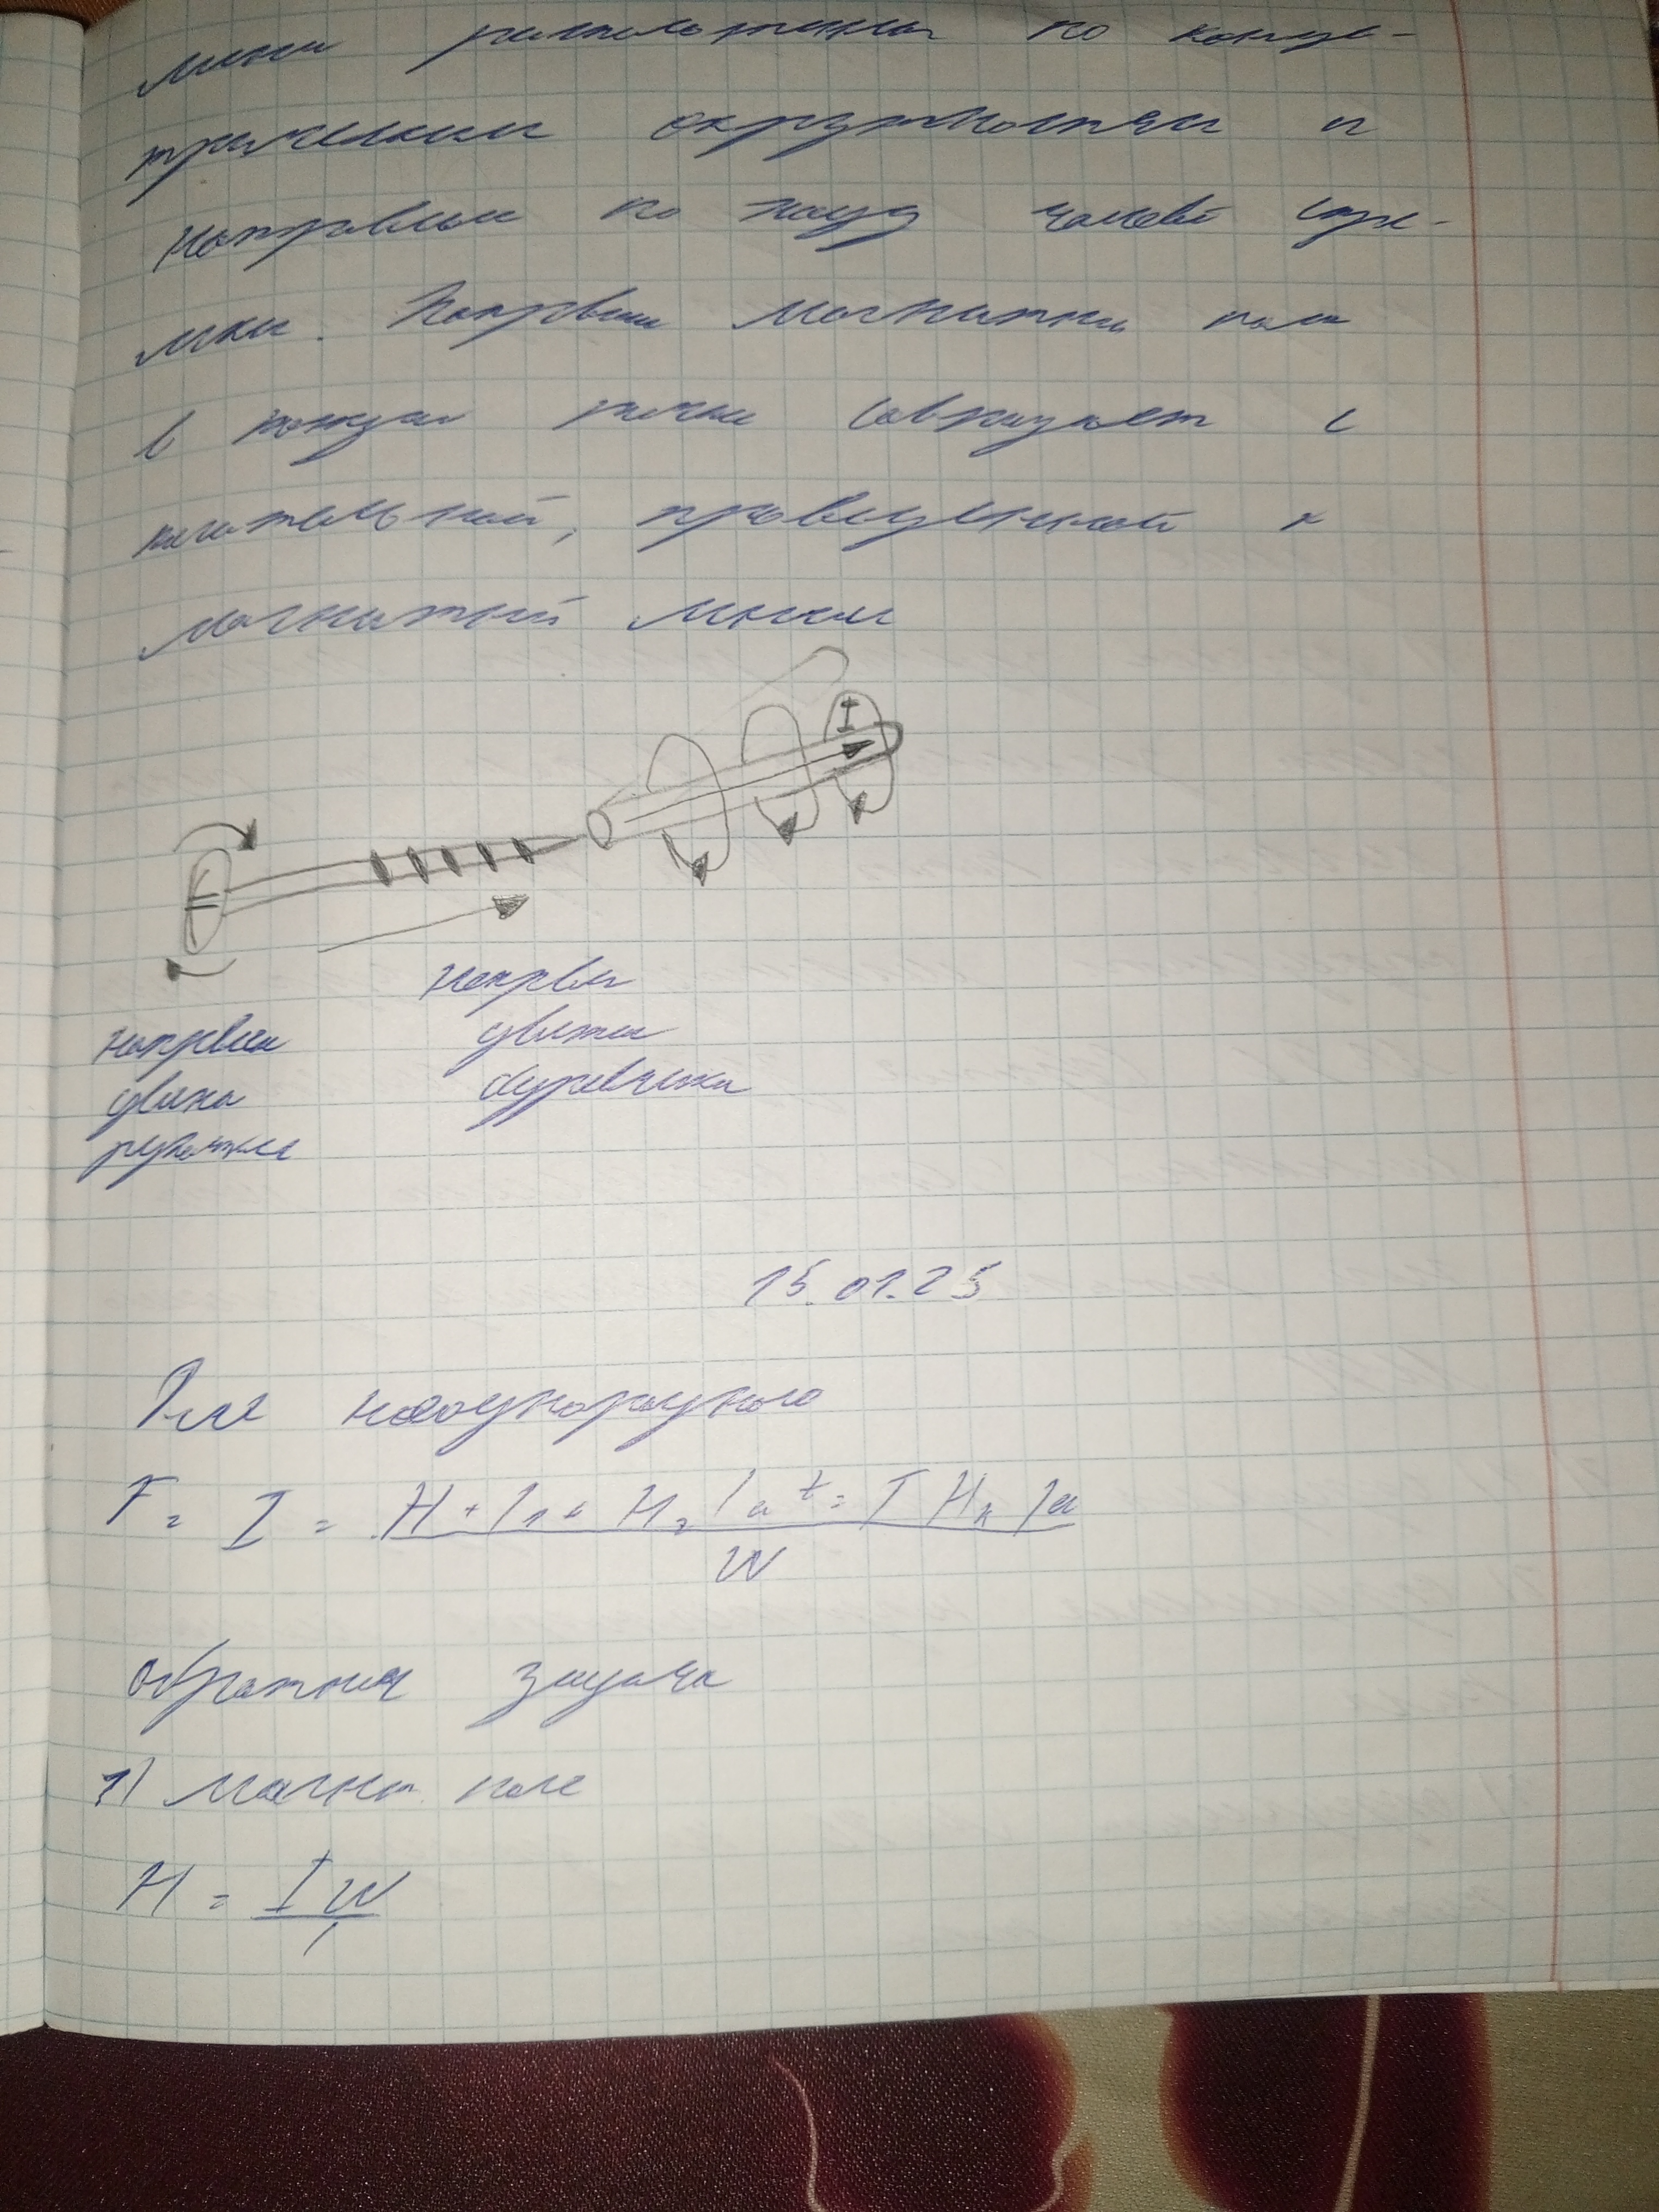 линии расположены по конце-
трическим окружностям и
направлены по ходу часовой стре-
лки. Направлен магнитны поля
в каждой точке совпадает с
касательной, проведенной к
магнитной линии
I
направл
движен
буравчика
направлен
движен
рукоятки
15.01.25
Для неоднородного
F = I =
W
обратная задача
1) магнит. поле
H = IW
l